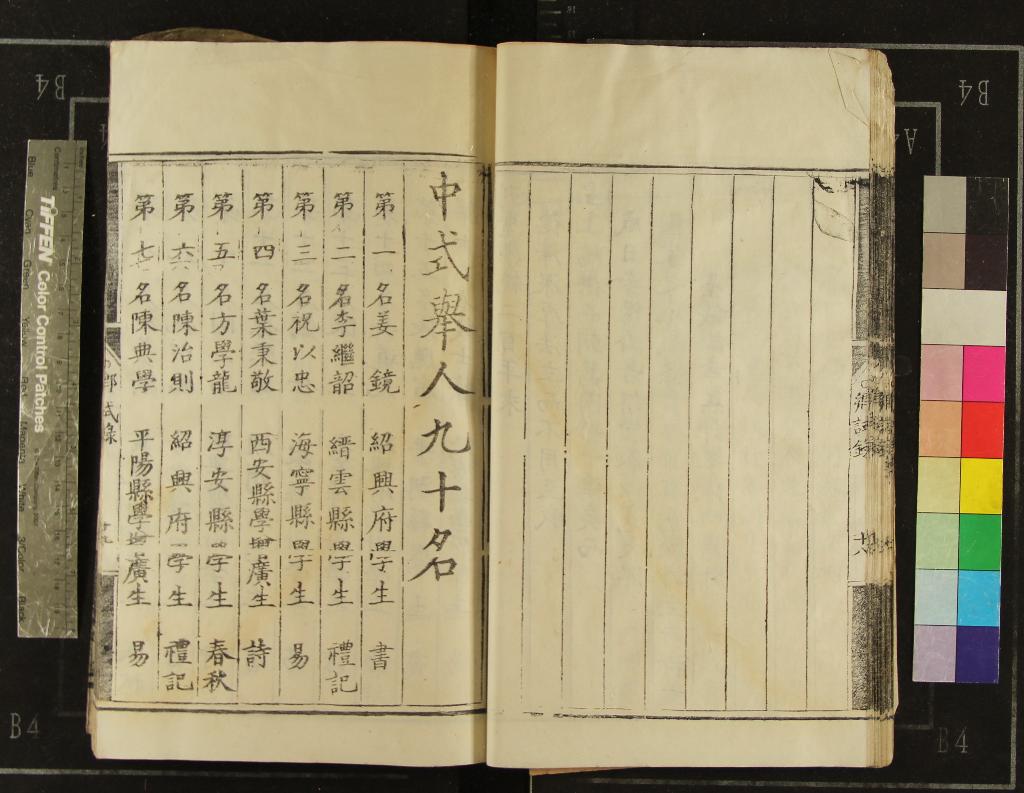 鄉試錄
十八
中式舉人九十名
第一名姜鏡 紹興府學生 書
第二名李繼韶 縉雲縣學生 禮記
第三名祝以忠 海寧縣學生 易
第四名葉秉敬 西安縣學增廣生 詩
第五名方學龍 淳安縣學生 春秋
第六名陳治則 紹興府學生 禮記
第七名陳典學 平陽縣學增廣生 易
鄉試錄
十九
TIFFEN Color Control Patches
B4
B4
B4
B4